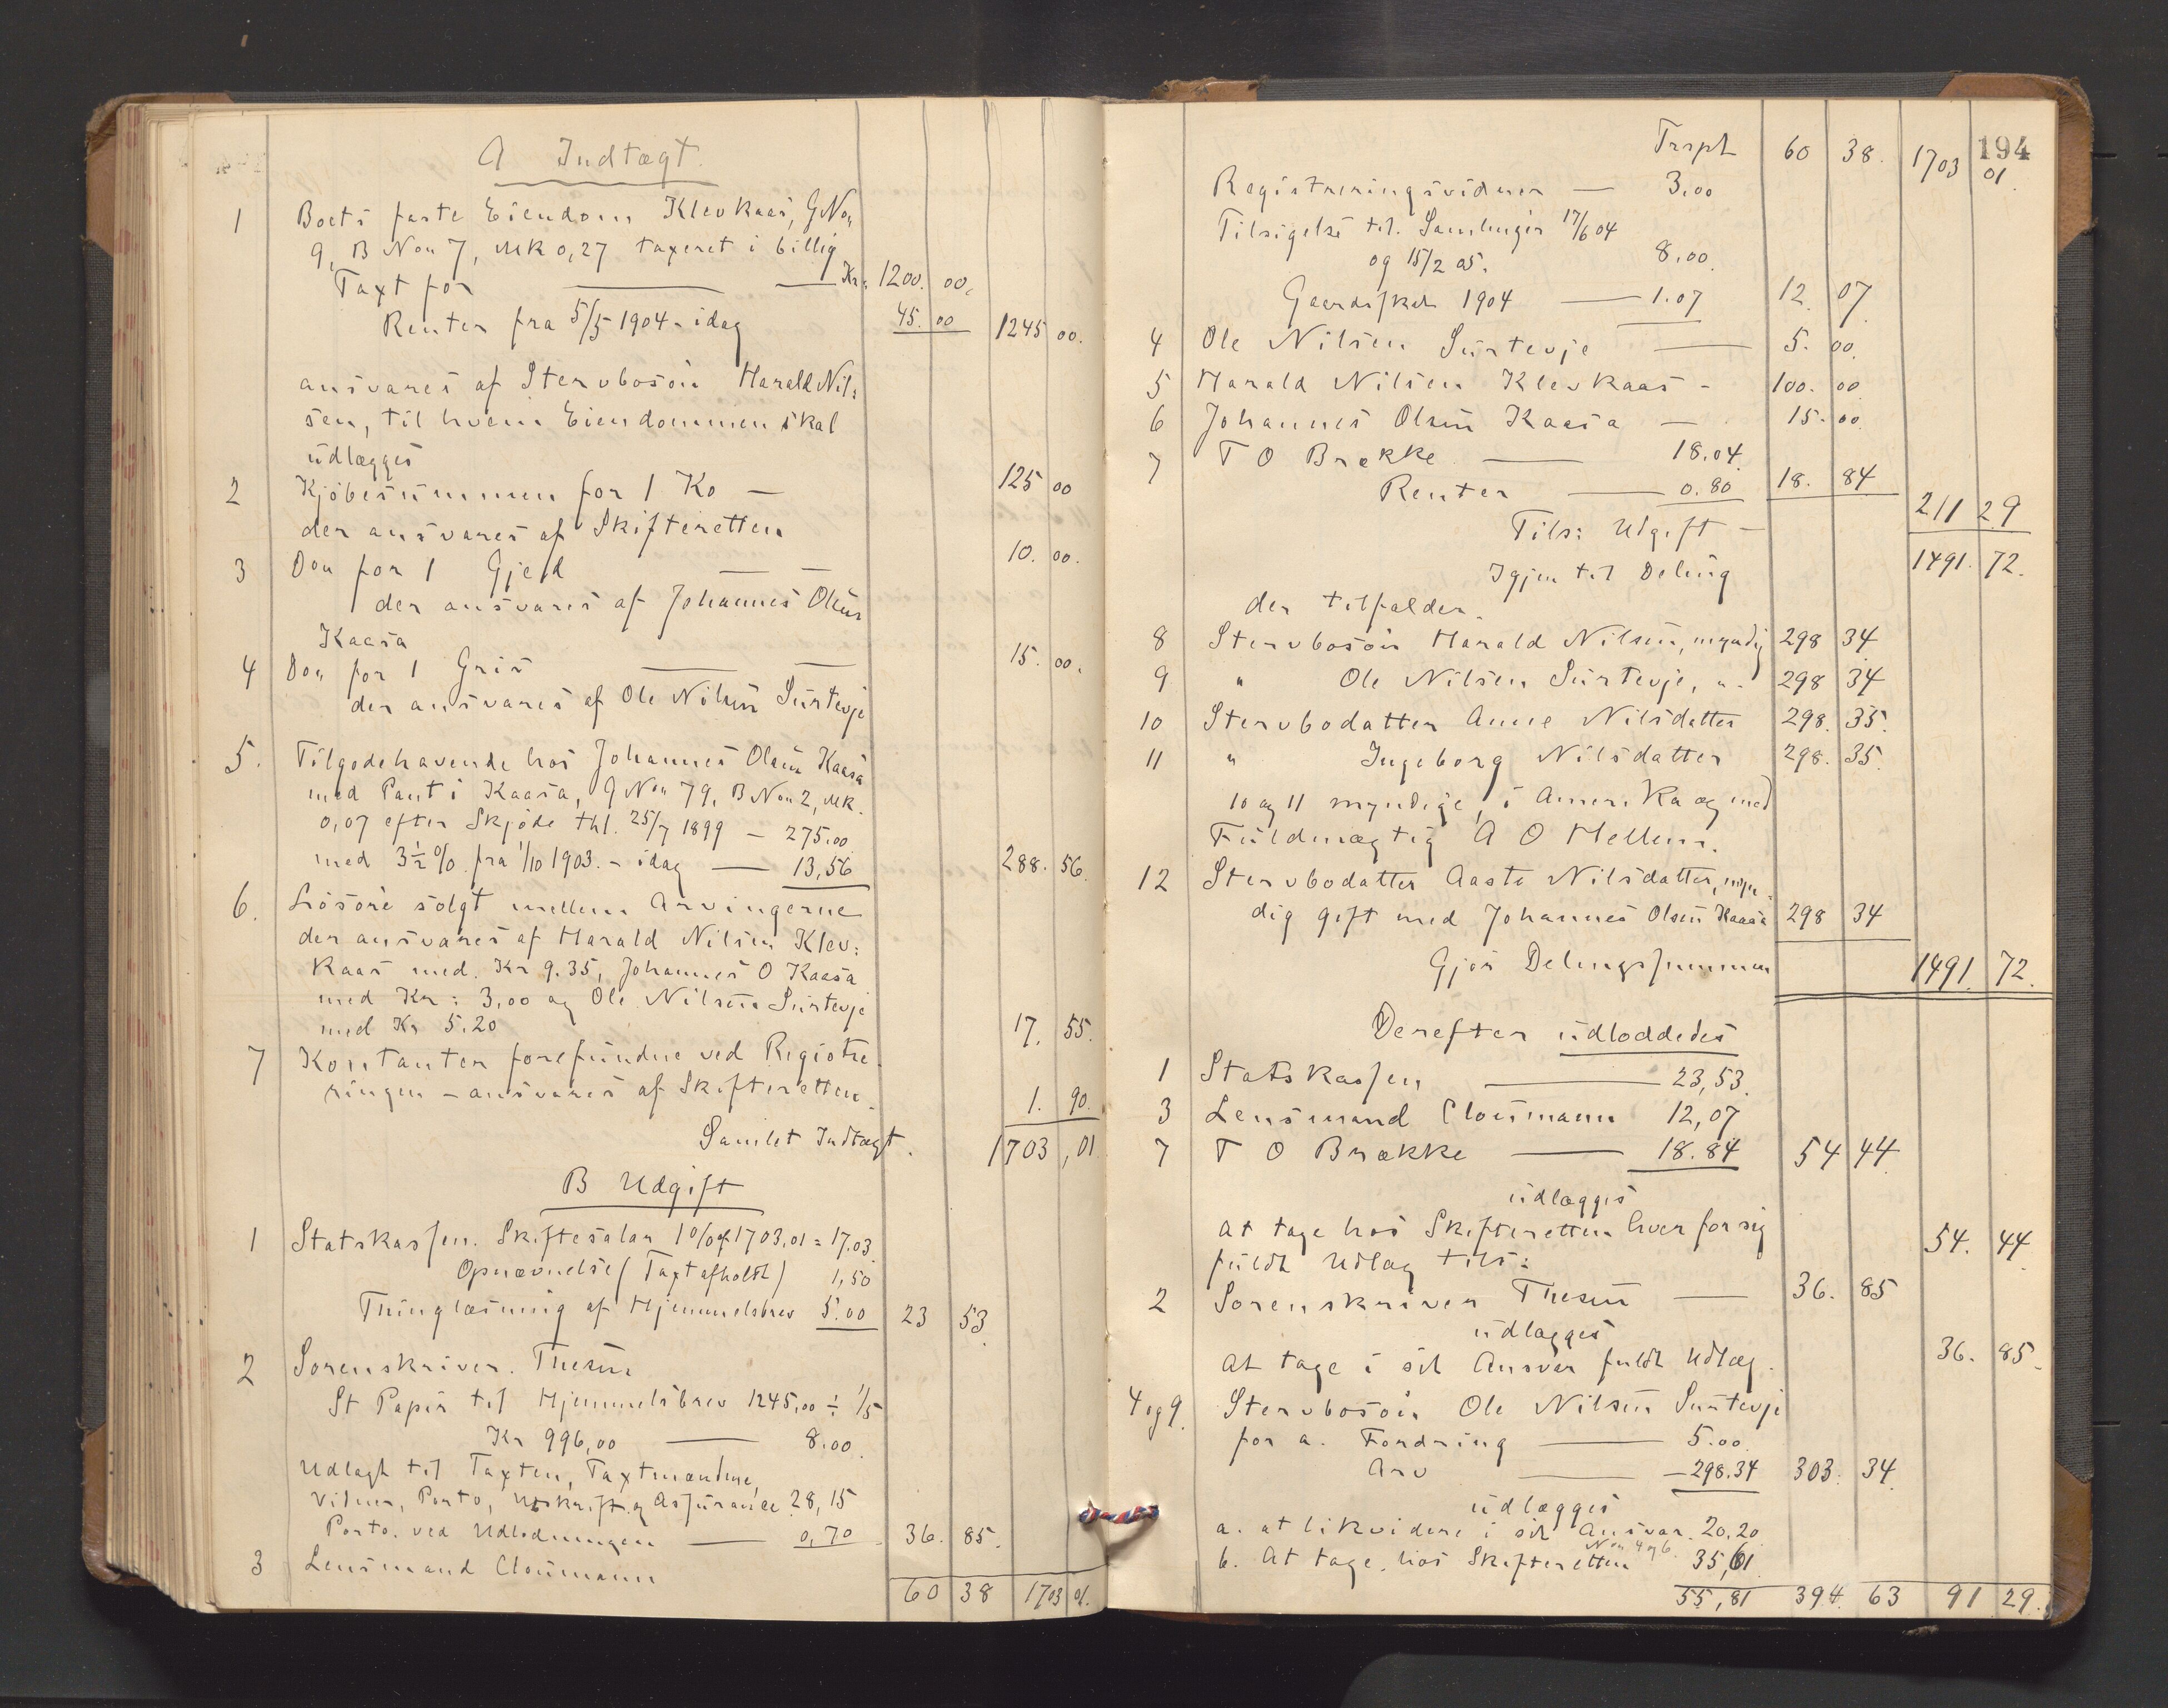 A Indtægt.
1 Boets faste Eiendom Klevkaas, GNo.
9, B No. 7, Mk 0,27 taxeret i billig
Taxt for — Kr. 1200. 00.
Renter fra 5/5 1904 - idag 45. 00 1245 00.
ansvares af Stervbosøn Harald Nil:
sen, til hvem Eiendommen skal
udlægges
2 Kjøbesummen for 1 Ko — 125 00
der ansvares af Skifteretten
3 Do. for 1 Gjeld — 10. 00.
der ansvares af Johannes Olsen
Kaasa
4 Do. for 1 Gris — 15. 00.
der ansvares af Ole Nilsen Surtevje
5. Tilgodehavende hos Johannes Olsen Kaasa
med Pant i Kaasa, GNo. 79, B No. 2, Mk.
0,07 efter Skjøde thl. 25/7 1899 — 275.00
med 3½ % fra 1/10 1903. - idag — 13,56 288. 56.
6. Løsøre solgt mellem Arvingerne
der ansvares af Harald Nilsen Klev:
kaas med. Kr 9.35, Johannes O Kaasa
med Kr: 3,00 og Ole Nilsen Surtevje
med Kr 5.20 17. 55.
7 Kontanter forefundne ved Registre
ringen - ansvares af Skifteretten. 1. 90.
Samlet Indtægt. 1703,01
B Udgift
1 Statskassen. Skiftesalær 1% af 1703,01 = 17.03.
Opnævnelse (Taxtafholdt) 1,50
Thinglæsning af Hjemmelsbrev 5.00 23 53.
2 Sorenskriver. Thesen
St Papir til Hjemmelsbrev 1245,00 ÷ 1/5
Kr 996,00 — 8.00.
Udlagt til Taxten, Taxtmændene,
Vidner, Porto, Udskrift og Assurance 28,15
Porto. ved Udlodningen — 0,70 36. 85.
3 Lensmand Cloumann
60 38 1703 01.
194
Trspt 60 38. 1703 01.
Registreringsvidner — 3.00
Tilsigelse til. Samlinger 17/6 04
og 15/2 05. 8.00.
Gaardsskat 1904 — 1.07 12. 07.
4 Ole Nilsen Surtevje — 5. 00.
5 Harald Nilsen Klevkaas - 100. 00
6 Johannes Olsen Kaasa — 15. 00.
7 T O Brekke — 18.04.
Renter — 0.80 18. 84
Tils: Udgift - 211 29
Igjen til Deling 1491. 72.
der tilfalder.
8 Stervbosøn Harald Nilsen, myndig 298 34
9 " Ole Nilsen Surtevje, " - 298 34
10 Stervbodatter Anne Nilsdatter 298. 35.
11 " Ingeborg Nilsdatter 298. 35.
10 og 11 myndige, i Amerika og med
Fuldmægtig A O Mellem.
12 Stervbodatter Aaste Nilsdatter, myn-
dig gift med Johannes Olsen Kaasa 298 34
Gjør Delingssummen 1491. 72.
Derefter udloddedes
1 Statskassen — 23,53.
3 Lensmand Cloumann 12,07
7 T O Brække — 18.84 54 44.
udlægges
at tage hos Skifteretten hver for sig
fuldt Udlæg tils: 54. 44.
2 Sorenskriver Thesen — 36. 85
udlægges
At tage i sit Ansvar fuldt Udlæg. 36. 85.
4 og 9. Stervbosøn Ole Nilsen Surtevje
for a. Fordring — 5.00.
Arv — 298.34 303. 34.
udlægges
a. at likvidere i sit Ansvar. 20.20
No. 4 og 6.
b. At tage. hos Skifteretten 35,61.
55,81 394. 63 91 29.